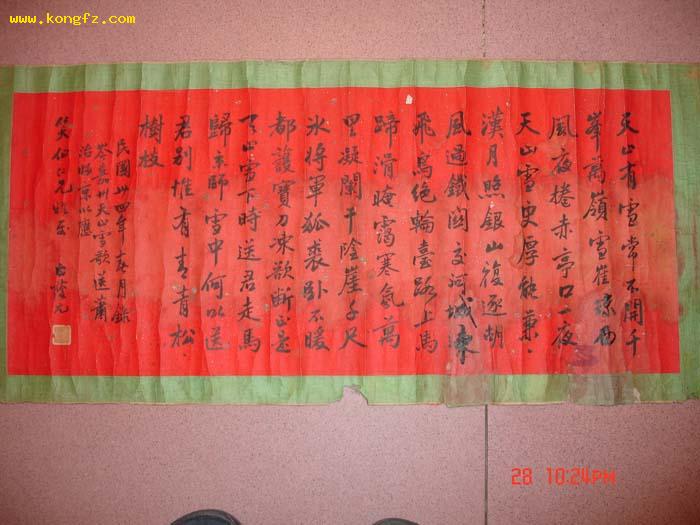 www.kongfz.com
天山有雪常不開千
峯萬嶺雪崔
風夜捲赤亭口一夜
天山雪更厚能兼
漢月照銀山復逐胡
風過鐵關交河城東
飛鳥絕輪臺路上馬
蹄滑晻靄寒氣萬
里凝闌干陰崖千尺
冰將軍狐裘卧不暖
都護寶刀凍欲斷正是
天山雪下時送君走馬
歸京師雪中何以送
君別惟有青青松
樹枝
民國卅四年春月錄
岑嘉州天山雪歌送蕭
治歸京以應
仁兄
28 10:24PM